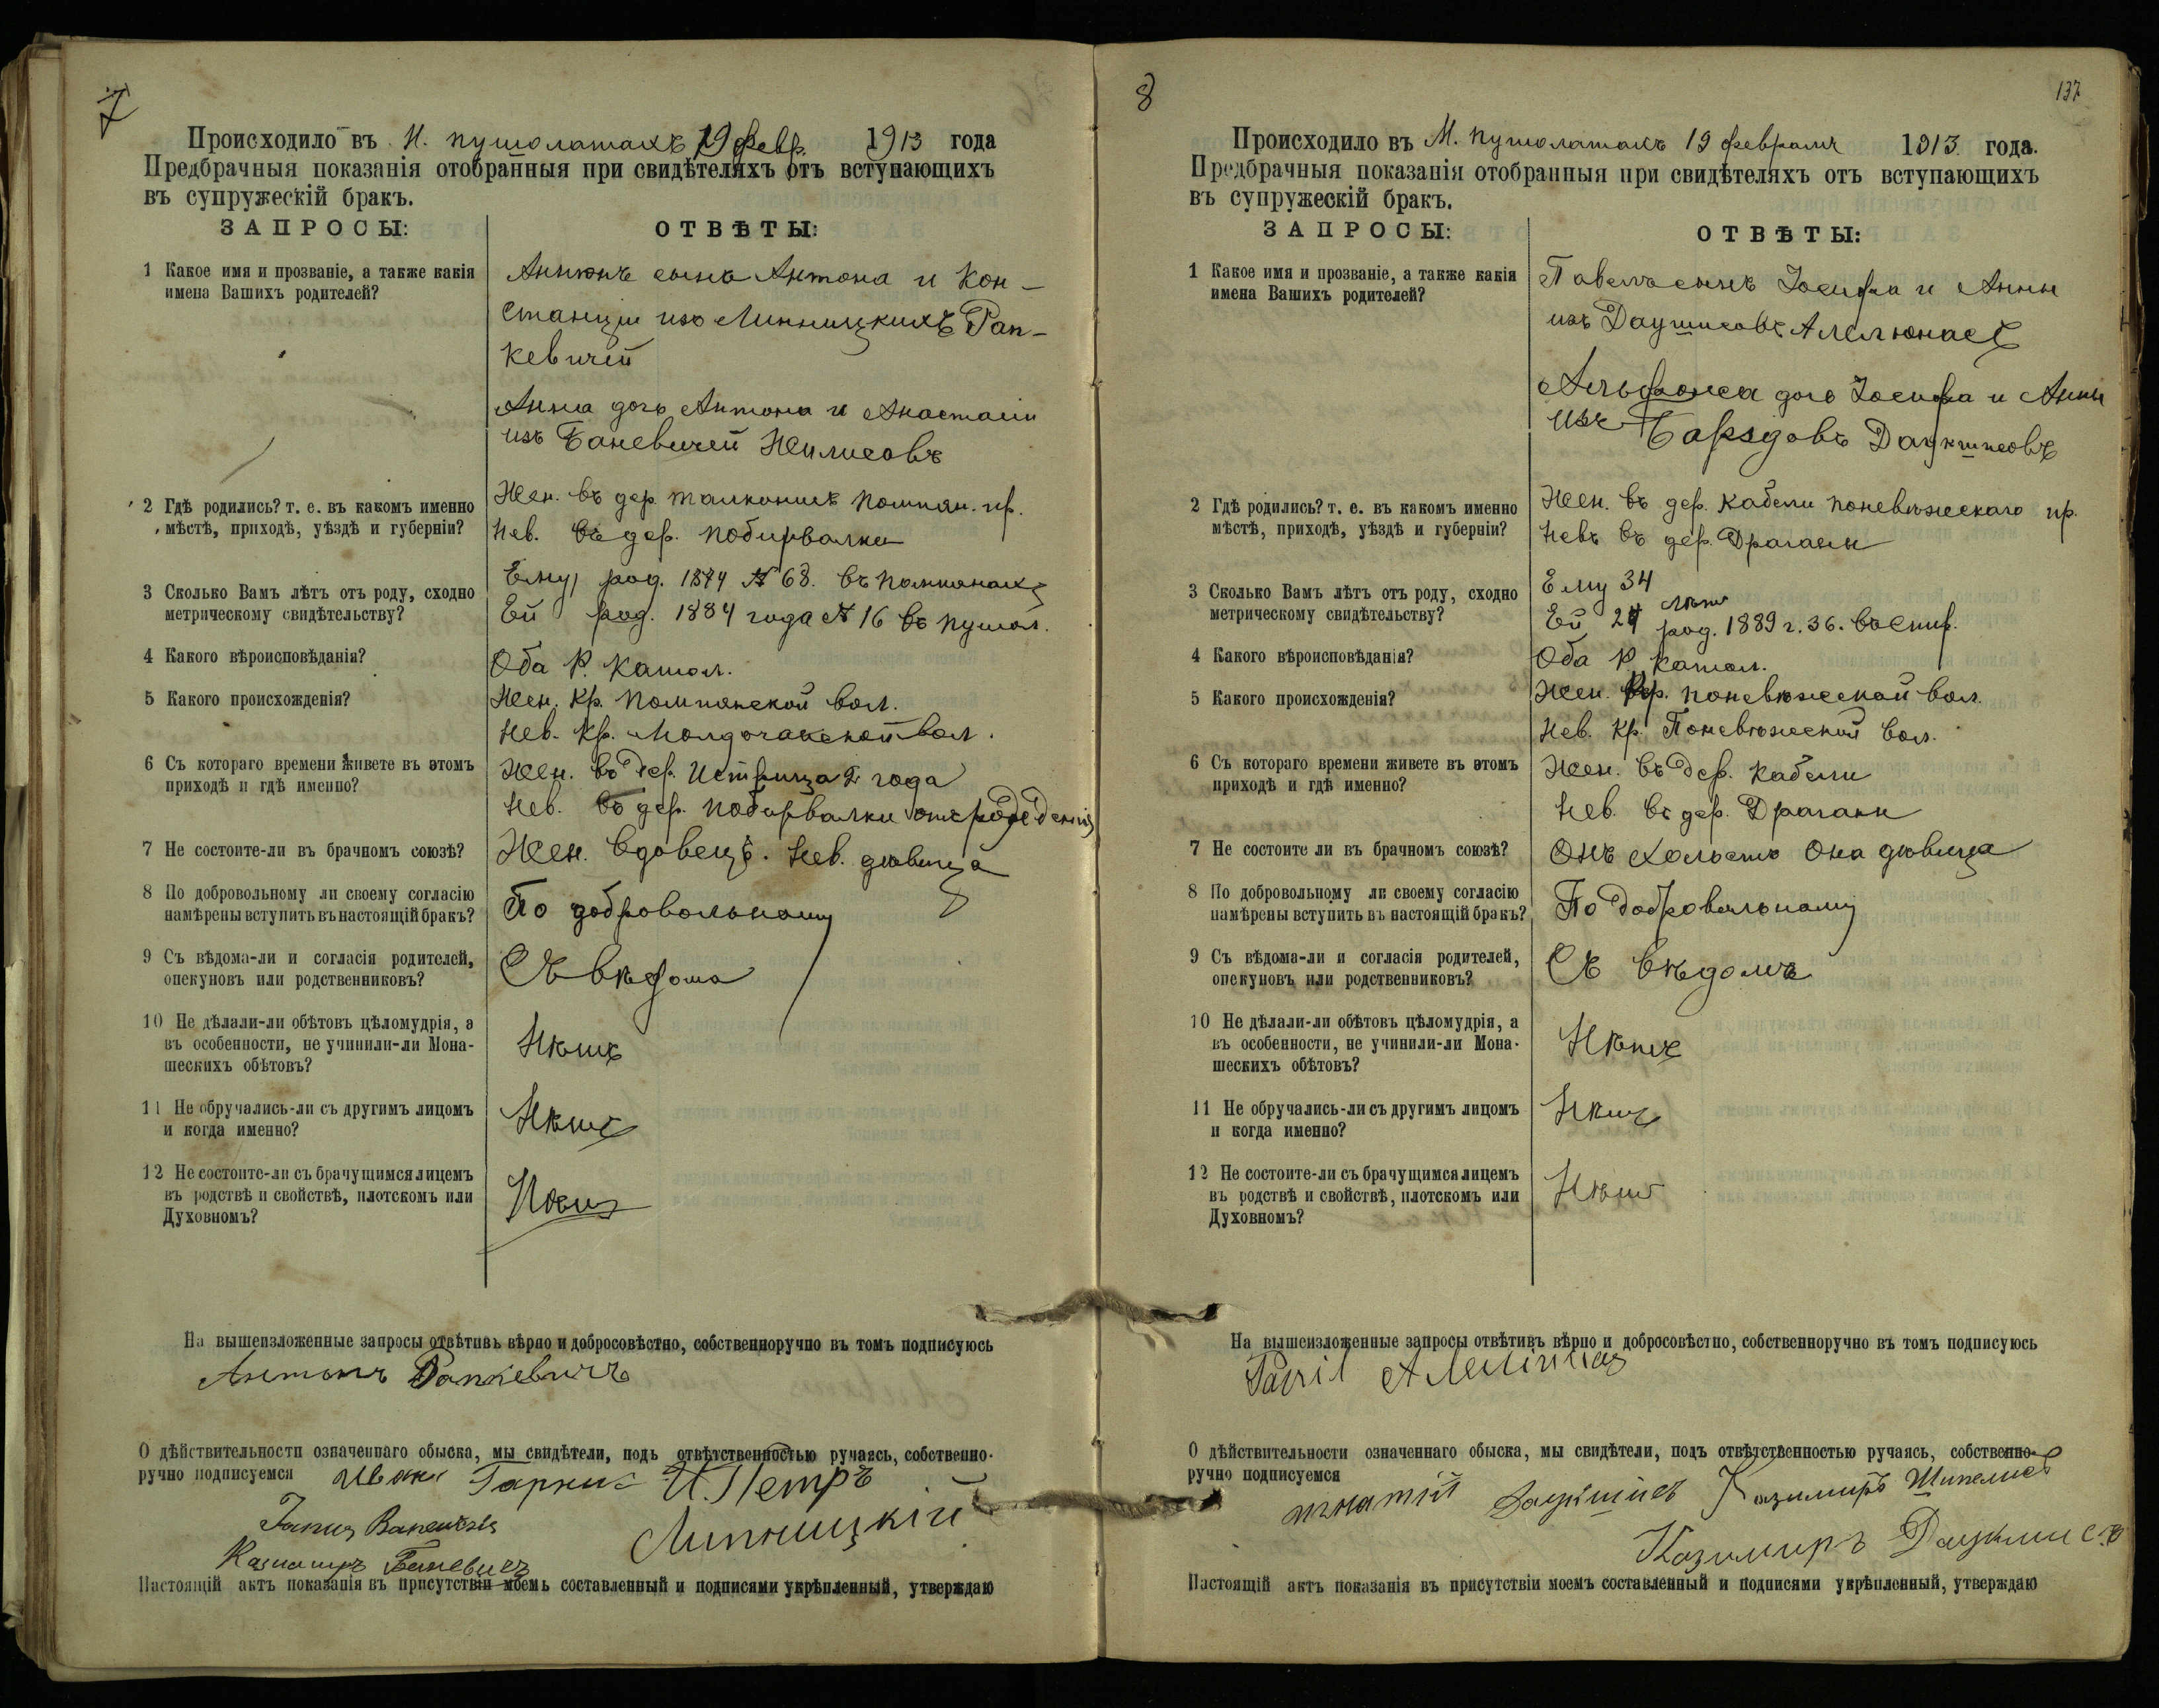 7
Происходило въ М. Пушолатахъ 19 февр. 1913 года
Предбрачныя показанія отобранныя при свидѣтеляхъ отъ вступающихъ
въ супружескій бракъ.
ЗАПРОСЫ: ОТВѢТЫ:
1 Какое имя и прозваніе, а также какія
имена Вашихъ родителей?
Антонъ сынъ Антона и Кон-
станціи изъ Липницкихъ Рап-
кевичей
Анна дочь Антона и Анастасіи
изъ Баневичей Жилисовъ
2 Гдѣ родились? т. е. въ какомъ именно
мѣстѣ, приходѣ, уѣздѣ и губерніи?
Жен. въ дер. Талконшѣ Помпян. пр.
Нев. въ дер. Побирвалки
3 Сколько Вамъ лѣтъ отъ роду, сходно
метрическому свидѣтельству?
Ему род. 1874 № 68. въ Помпянахъ
Ей род. 1884 года № 16 въ Пушол.
4 Какого вѣроисповѣданія?
Оба Р. Катол.
5 Какого происхожденія?
Жен. Кр. Помпянской вол.
Нев. Кр. вол.
6 Съ котораго времени живете въ этомъ
приходѣ и гдѣ именно?
Жен. въ дер. Истрица года
Нев. въ дер. Побирвалки отъ рожденія
7 Не состоите-ли въ брачномъ союзѣ?
Жен. вдовецъ. Нев. дѣвица
8 По добровольному ли своему согласію
намѣрены вступить въ настоящій бракъ?
По добровольному
9 Съ вѣдома-ли и согласія родителей,
опекуновъ или родственниковъ?
Съ вѣдома
10 Не дѣлали-ли обѣтовъ цѣломудрія, а
въ особенности, не учинили-ли Мона-
шескихъ обѣтовъ?
Нѣтъ
11 Не обручались-ли съ другимъ лицомъ
и когда именно?
Нѣтъ
12 Не состоите-ли съ брачущимся лицемъ
въ родствѣ и свойствѣ, плотскомъ или
Духовномъ?
Нѣтъ
На вышеизложенные запросы отвѣтивъ вѣрно и добросовѣстно, собственноручно въ томъ подписуюсь
Антонъ Рапкевичъ
О дѣйствительности означеннаго обыска, мы свидѣтели, подъ отвѣтственностью ручаясь, собственно-
ручно подписуемся Иванъ И. Петръ
Липницкій
Казимиръ Баневичъ
Настоящій актъ показанія въ присутствіи моемъ составленный и подписями укрѣпленный, утверждаю
8
137
Происходило въ М. Пушолатахъ 19 февраля 1913 года.
Предбрачныя показанія отобранныя при свидѣтеляхъ отъ вступающихъ
въ супружескій бракъ.
ЗАПРОСЫ: ОТВѢТЫ:
1 Какое имя и прозваніе, а также какія
имена Вашихъ родителей?
Павелъ сынъ Іосифа и Анны
изъ Даушисовъ Алелюнасъ
Альфонса дочь Іосифа и Анны
изъ Барздовъ Даукшисовъ
2 Гдѣ родились? т. е. въ какомъ именно
мѣстѣ, приходѣ, уѣздѣ и губерніи?
Жен. въ дер. Кабели Поневѣжскаго пр.
Нев. въ дер. Драганы
3 Сколько Вамъ лѣтъ отъ роду, сходно
метрическому свидѣтельству?
Ему 34
Ей 24 лѣтъ род. 1889 г. 36.
4 Какого вѣроисповѣданія?
Оба Р. Катол.
5 Какого происхожденія?
Жен. Кр. Поневѣжской вол.
Нев. Кр. Поневѣжской вол.
6 Съ котораго времени живете въ этомъ
приходѣ и гдѣ именно?
Жен. въ дер. Кабели
Нев. въ дер. Драганы
7 Не состоите ли въ брачномъ союзѣ?
Онъ холостъ Она дѣвица
8 По добровольному ли своему согласію
намѣрены вступить въ настоящій бракъ?
По добровольному
9 Съ вѣдома-ли и согласія родителей,
опекуновъ или родственниковъ?
Съ вѣдома
10 Не дѣлали-ли обѣтовъ цѣломудрія, а
въ особенности, не учинили-ли Мона-
шескихъ обѣтовъ?
Нѣтъ
11 Не обручались-ли съ другимъ лицомъ
и когда именно?
Нѣтъ
12 Не состоите-ли съ брачущимся лицемъ
въ родствѣ и свойствѣ, плотскомъ или
Духовномъ?
Нѣтъ
На вышеизложенные запросы отвѣтивъ вѣрно и добросовѣстно, собственноручно въ томъ подписуюсь
О дѣйствительности означеннаго обыска, мы свидѣтели, подъ отвѣтственностью ручаясь, собственно-
ручно подписуемся
Игнатій Даукшисъ Казимиръ Шипелисъ
Казимиръ
Настоящій актъ показанія въ присутствіи моемъ составленный и подписями укрѣпленный, утверждаю